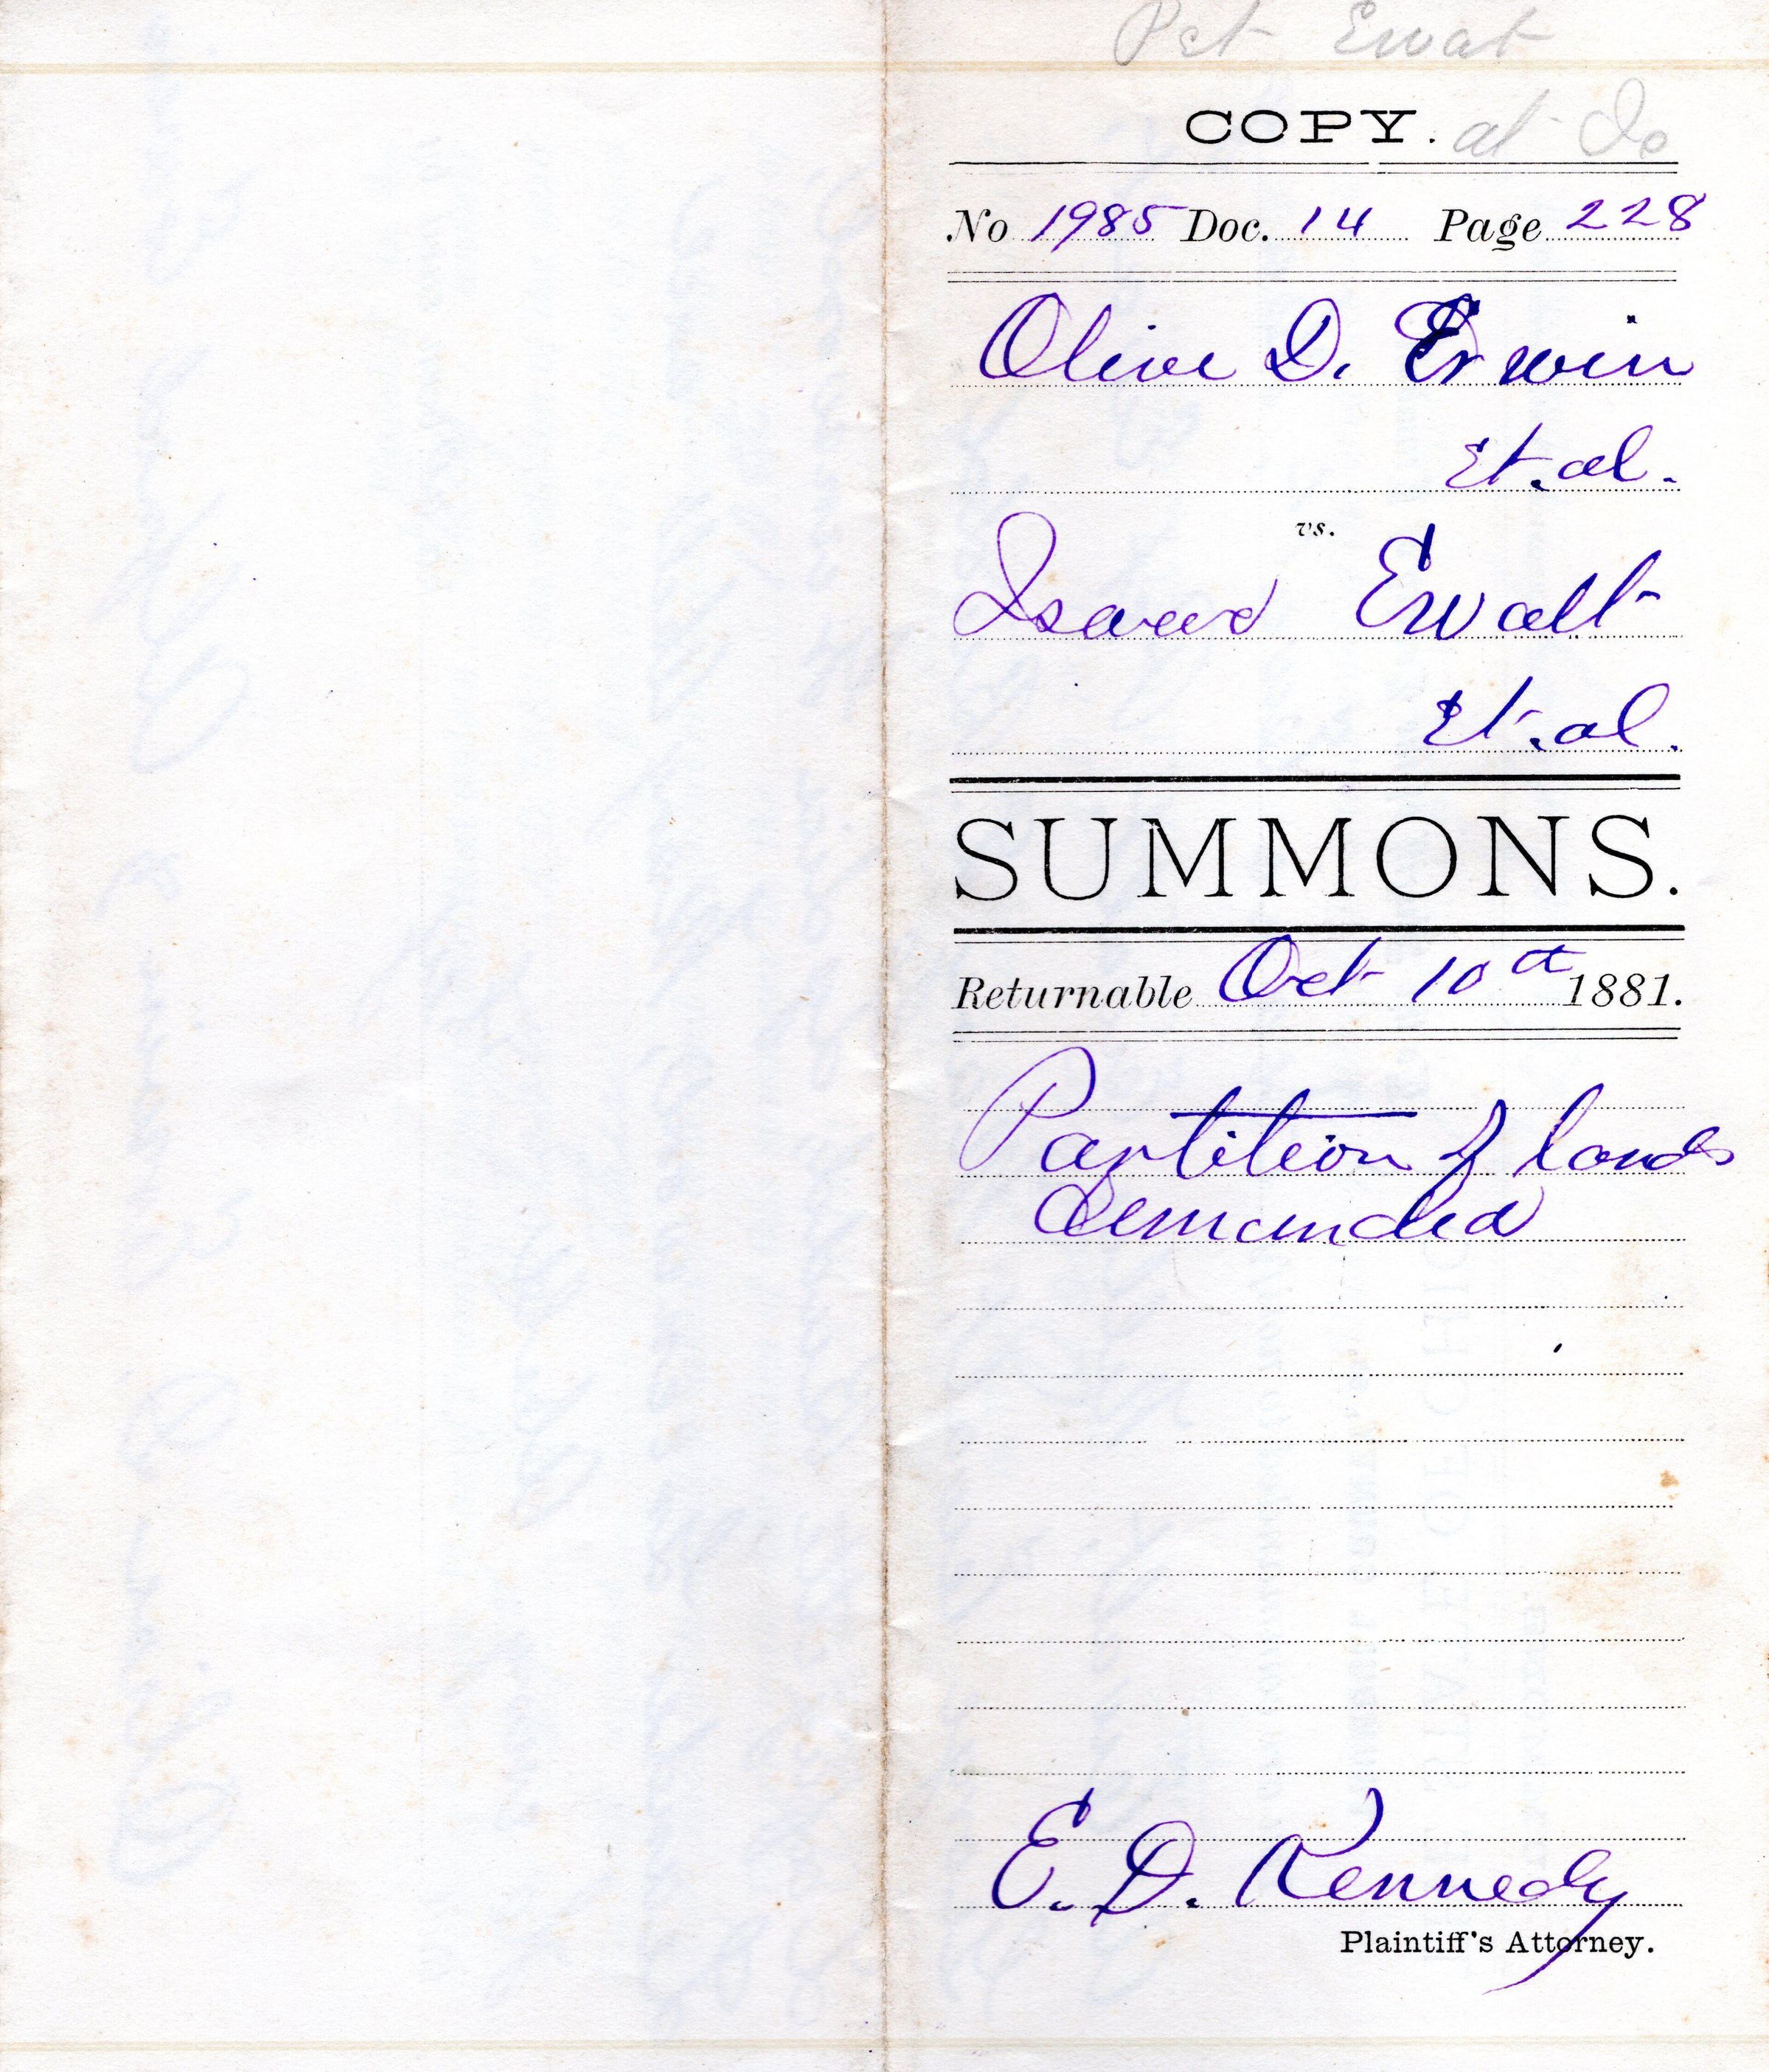 Pet Ewat
COPY. at
No 1985 Doc. 14 Page 228
Olive D. Erwin
Et.al.
vs.
Isaac Ewalt
Et.al.
SUMMONS.
Returnable Oct 10th 1881.
Partition of lands
demanded
E. D. Kennedy
Plaintiff's Attorney.